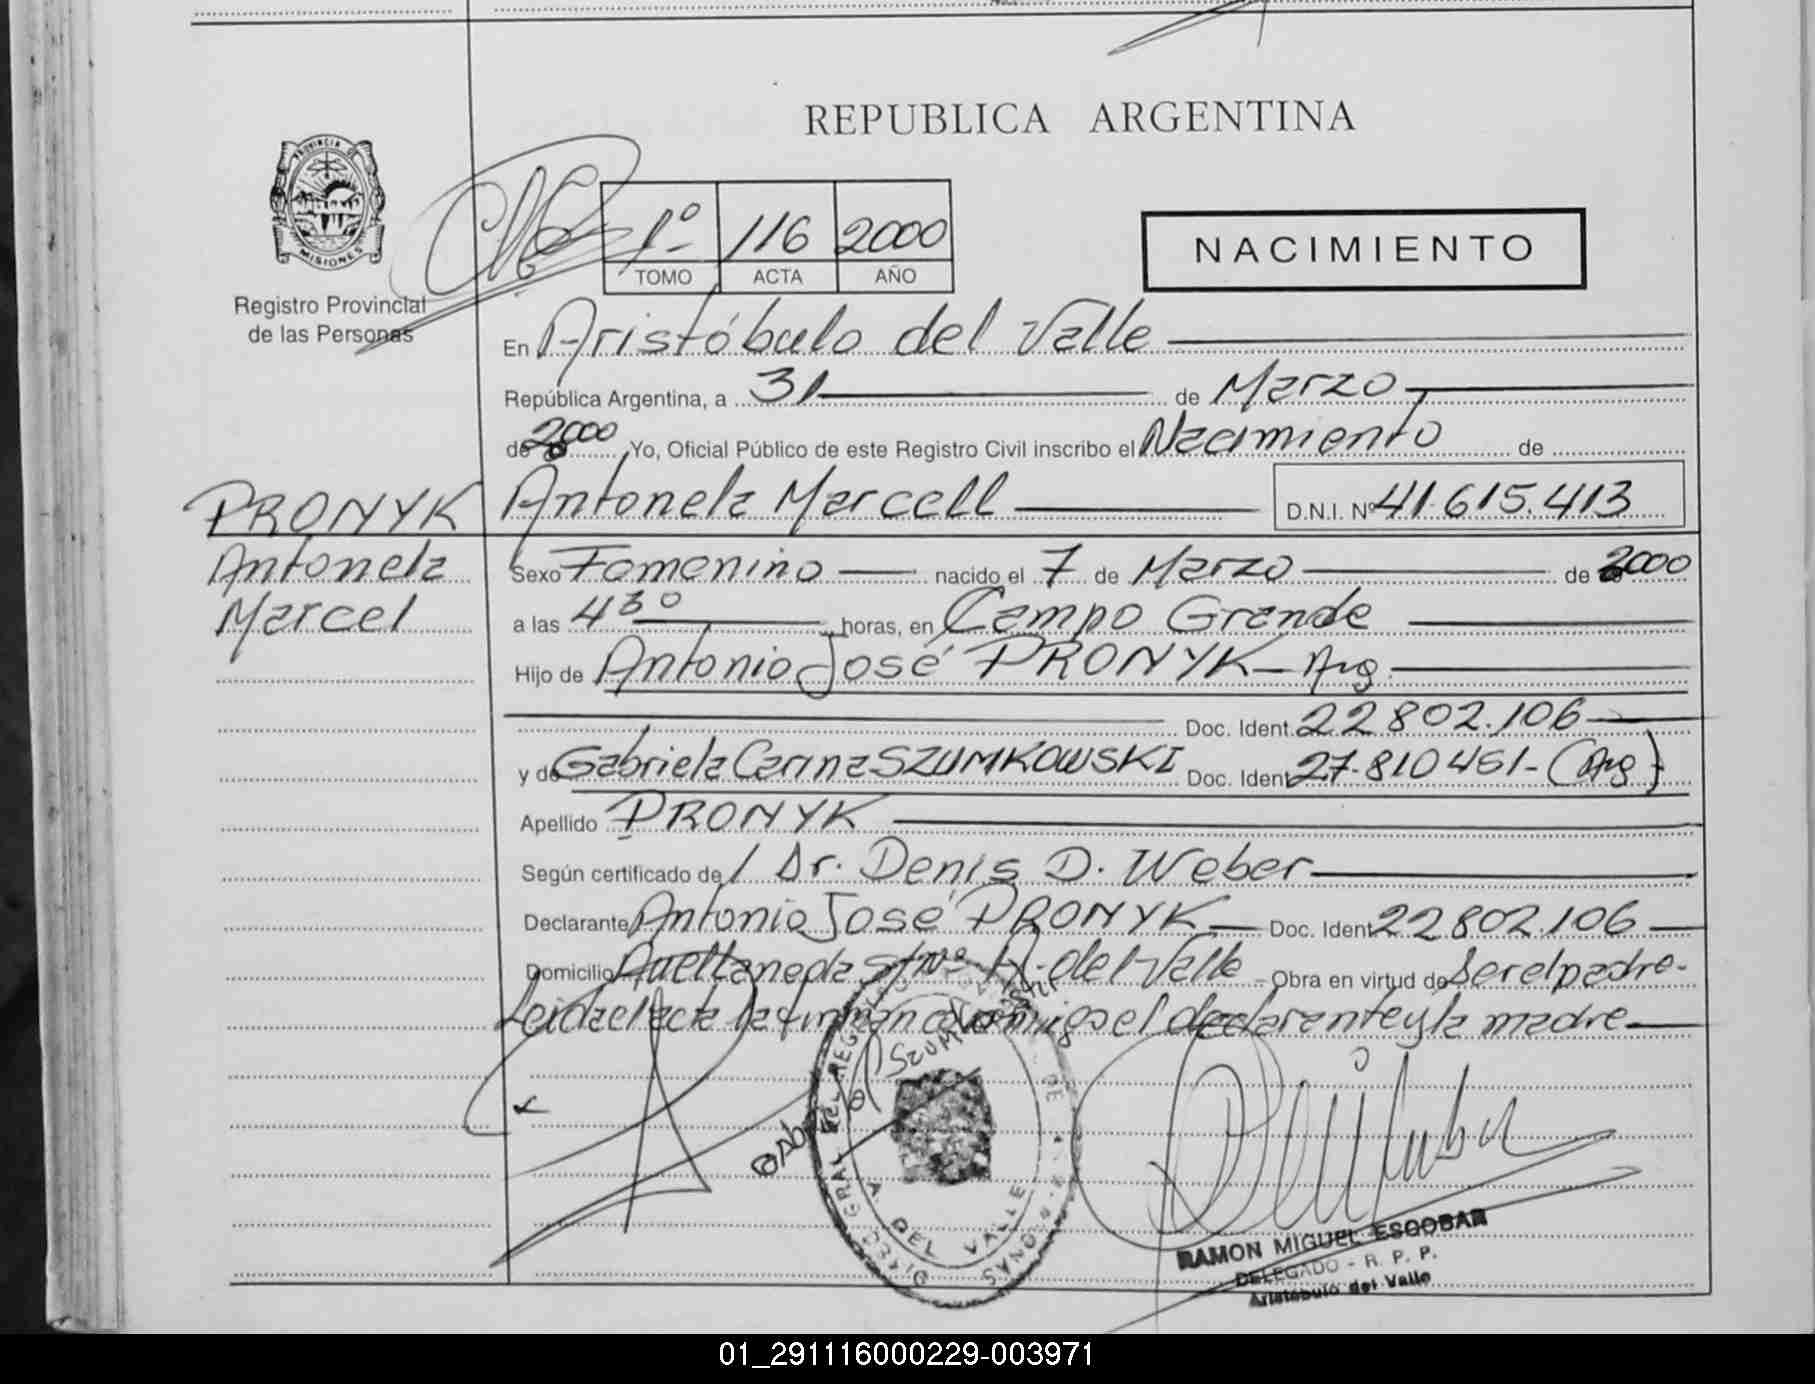 REPUBLICA ARGENTINA
PROVINCIA DE
MISIONES
Registro Provincial
de las Personas
1º 116 2000
TOMO ACTA AÑO
NACIMIENTO
En Aristóbulo del Valle
República Argentina, a 31 de Marzo
de 2000 Yo, Oficial Público de este Registro Civil inscribo el Nacimiento de
PRONYK
Antonela
Marcel
Antonela Marcell D.N.I. Nº 41.615.413
Sexo Femenino nacido el 7 de Marzo de 2000
a las 4 30 horas, en Campo Grande
Hijo de Antonio José PRONYK - Arg.
Doc. Ident. 22802.106
y de Gabriela Carina SZUMKOWSKI Doc. Ident. 27.810461- (Arg)
Apellido PRONYK
Según certificado de / Dr. Denis D. Weber
Declarante Antonio José PRONYK Doc. Ident. 22802.106
Domicilio Avellaneda s/nº A. del Valle Obra en virtud de ser el padre-
Leida el acta la firman conmigo el declarante y la madre
DEL VALLE
RAMON MIGUEL ESCOBAR
DELEGADO - R. P. P.
Aristóbulo del Valle
01_291116000229-003971